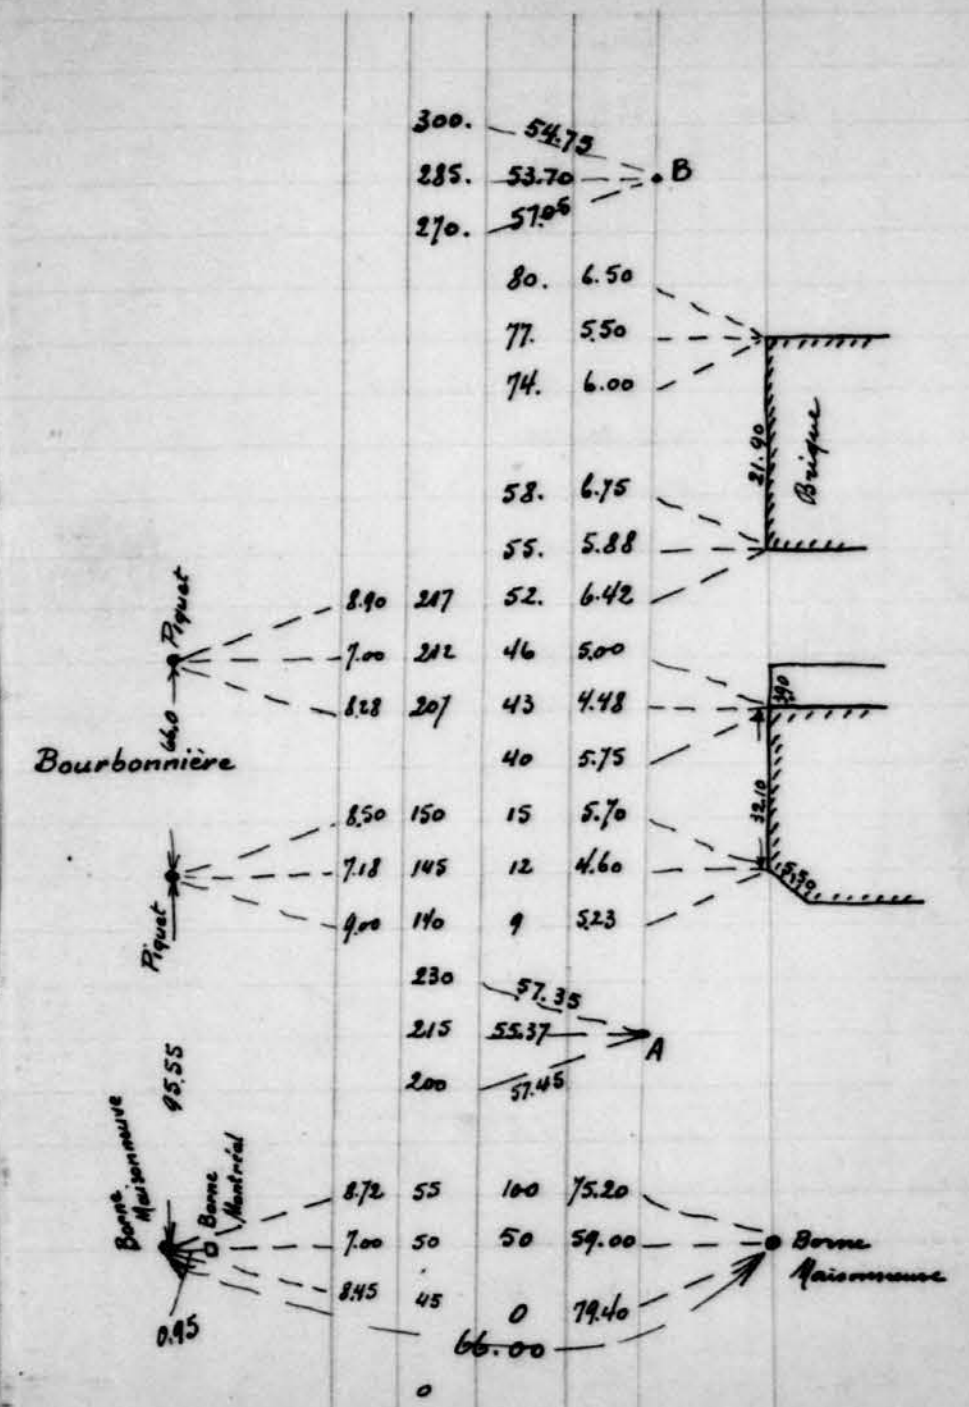 300. 54.75
285. 53.70 B
270. 57.05
80. 6.50
77. 5.50
74. 6.00
21.90
Brique
58. 6.75
55. 5.88
Piquet
8.90 217 52. 6.42
7.00 212 46 5.00
3.90
8.28 207 43 4.48
66.0
Bourbonnière
40 5.75
32.10
8.50 150 15 5.70
7.18 145 12 4.60
5.50
9.00 140 9 5.23
Piquet
230 57.35
215 55.37 A
200 57.45
95.55
Borne Maisonneuve
Borne Montréal
8.72 55 100 75.20
7.00 50 50 59.00 Borne
Maisonneuve
8.45 45 0 79.40
0.95
66.00
0